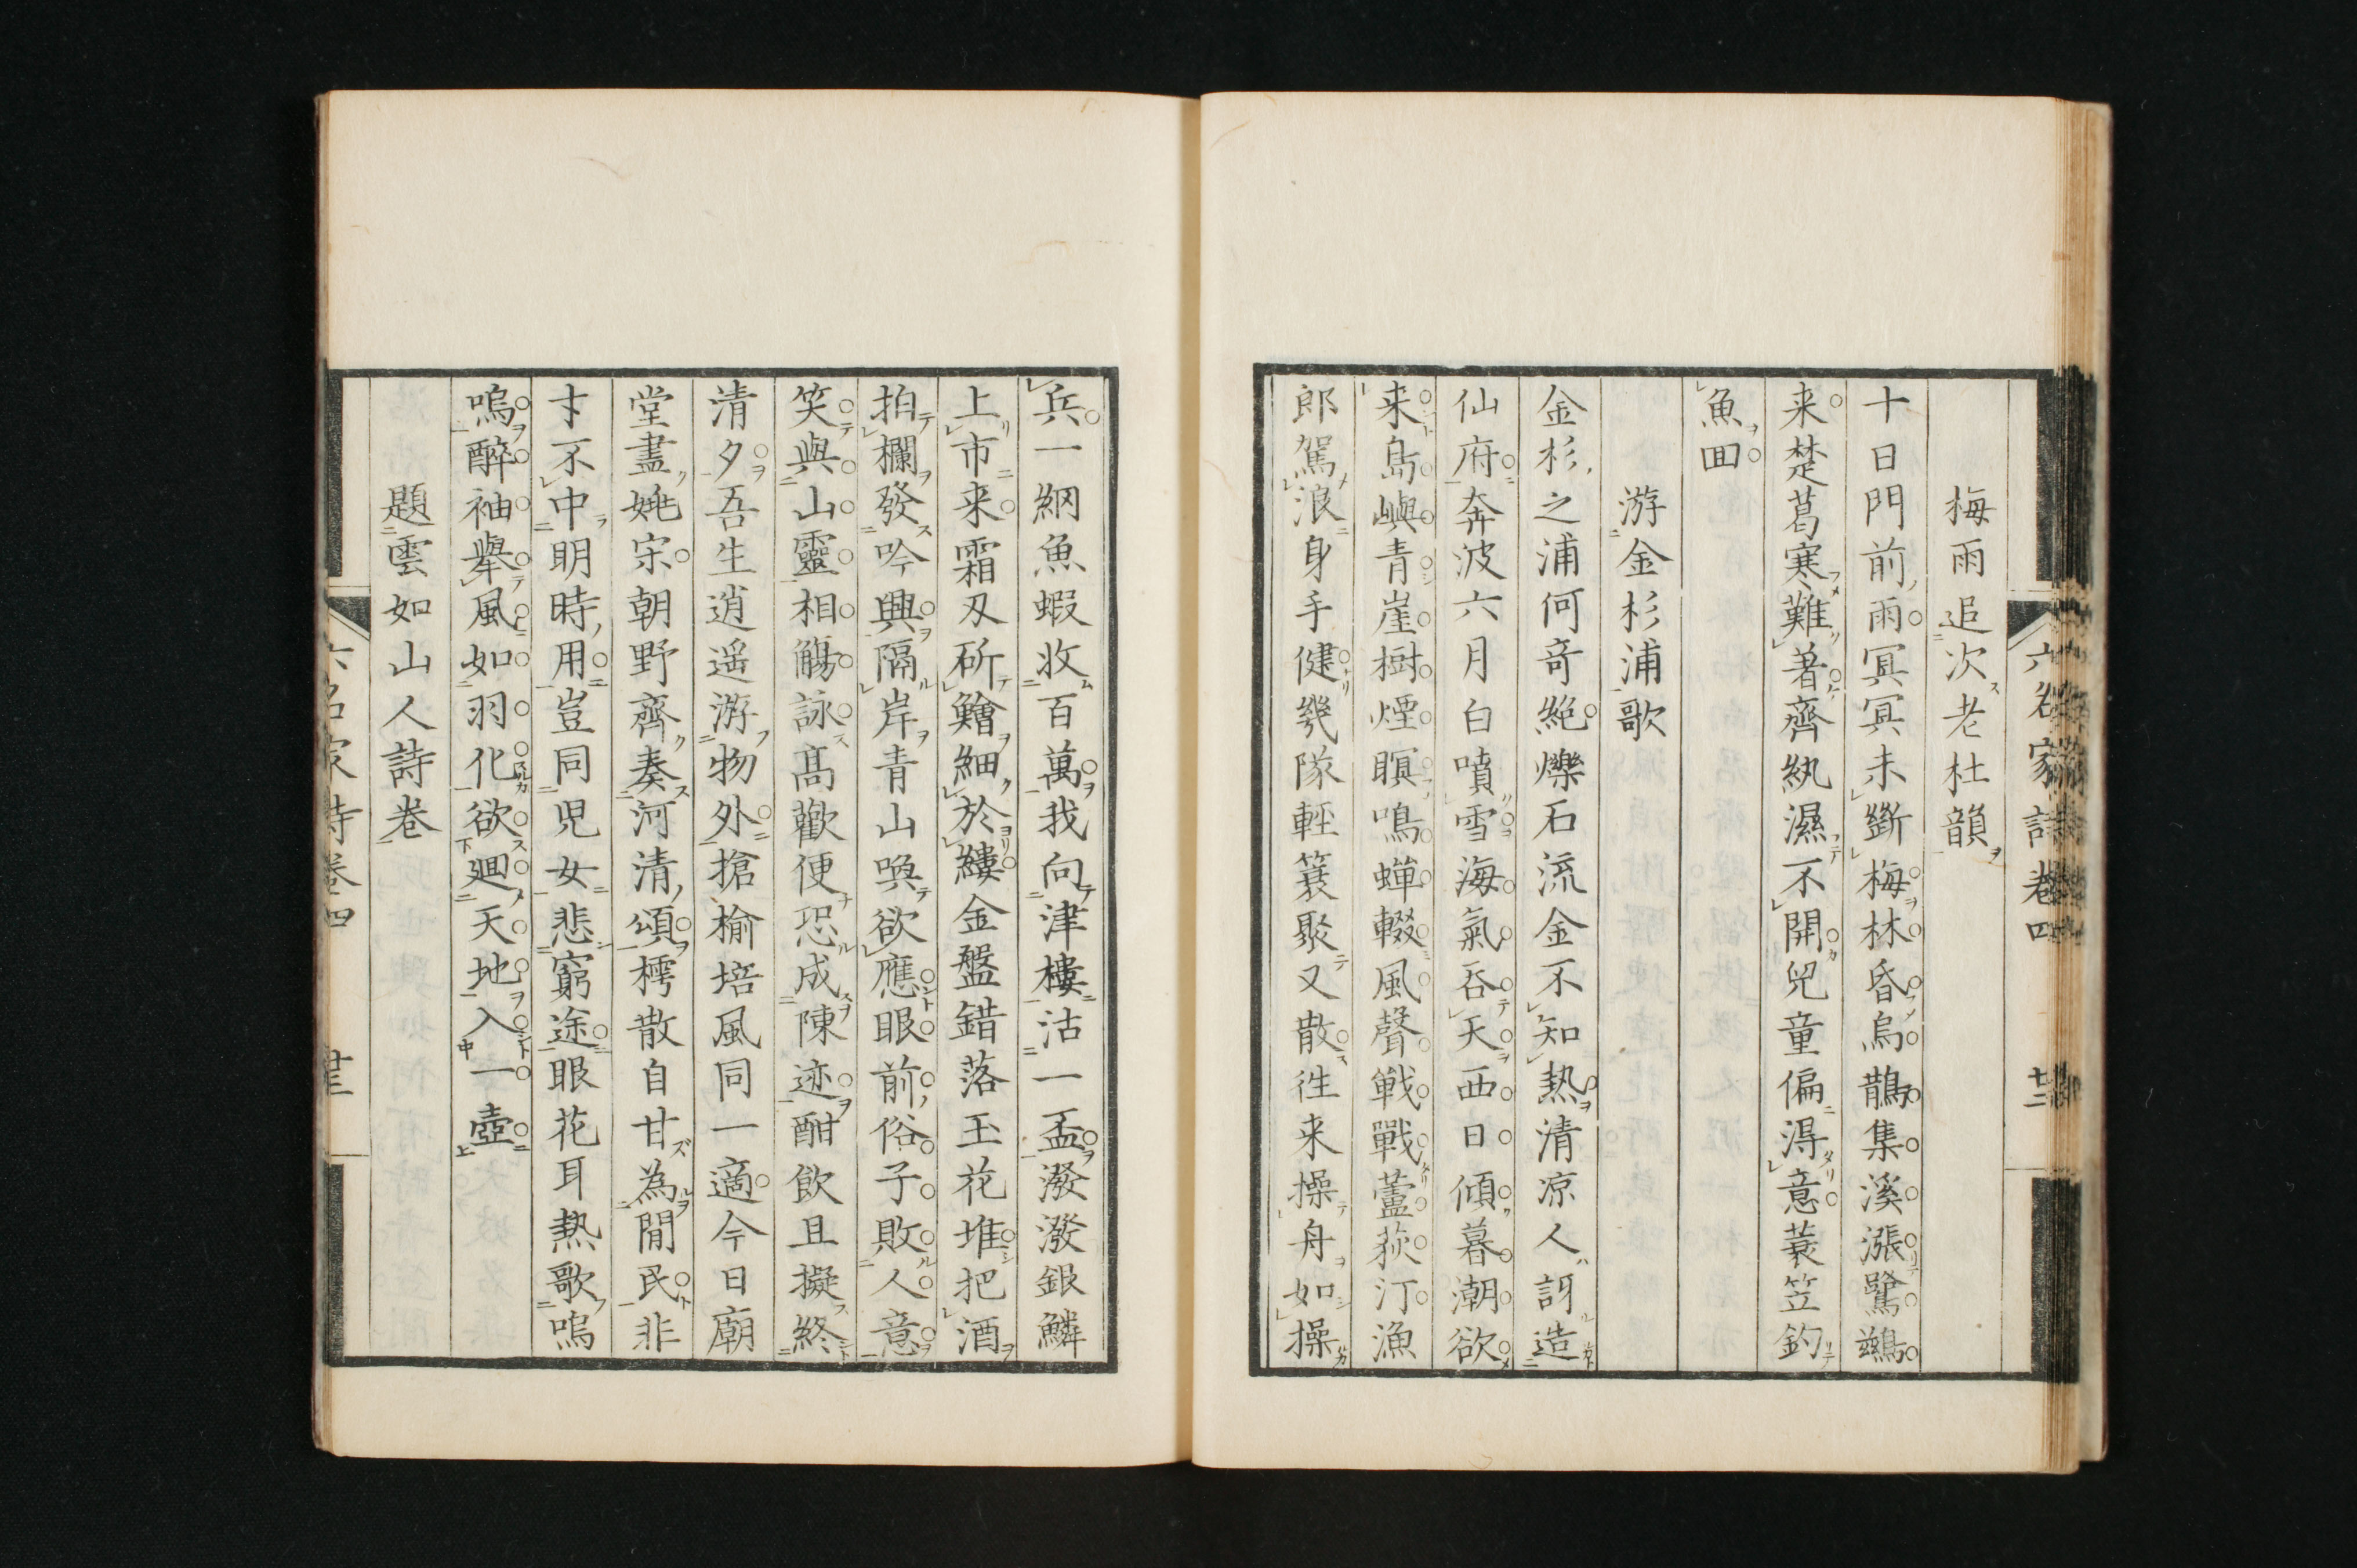 六名家詩卷四
十二
梅雨追次老杜韻
十日門前雨冥冥未斷梅林昏烏鵲集溪漲鷺鷀
来楚葛寒難著齊紈濕不開兒童偏得意蓑笠釣
魚回
游金杉浦歌
金杉之浦何奇絶爍石流金不知熱清凉人訝造
仙府奔波六月白噴雪海氣吞天西日傾暮潮欲
来島嶼青崖樹煙暝鳴蟬輟風聲戦戰蘆荻汀漁
郎駕浪身手健幾隊輕簑聚又散往来操舟如操
兵一網魚蝦收百萬我向津樓沽一盃潑潑銀鱗
上市来霜刄斫鱠細於縷金盤錯落玉花堆把酒
拍欄發吟興隔岸青山喚欲應眼前俗子敗人意
笑與山靈相觴詠高歡便恐成陳迹酣飲且擬終
清夕吾生逍遥游物外搶榆培風同一適今日廟
堂盡姚宋朝野齊奏河清頌樗散自甘為閒民非
才不中明時用豈同児女悲窮途眼花耳熱歌嗚
嗚醉袖舉風如羽化欲廻天地入一壺
題雲如山人詩卷
六名家詩卷四